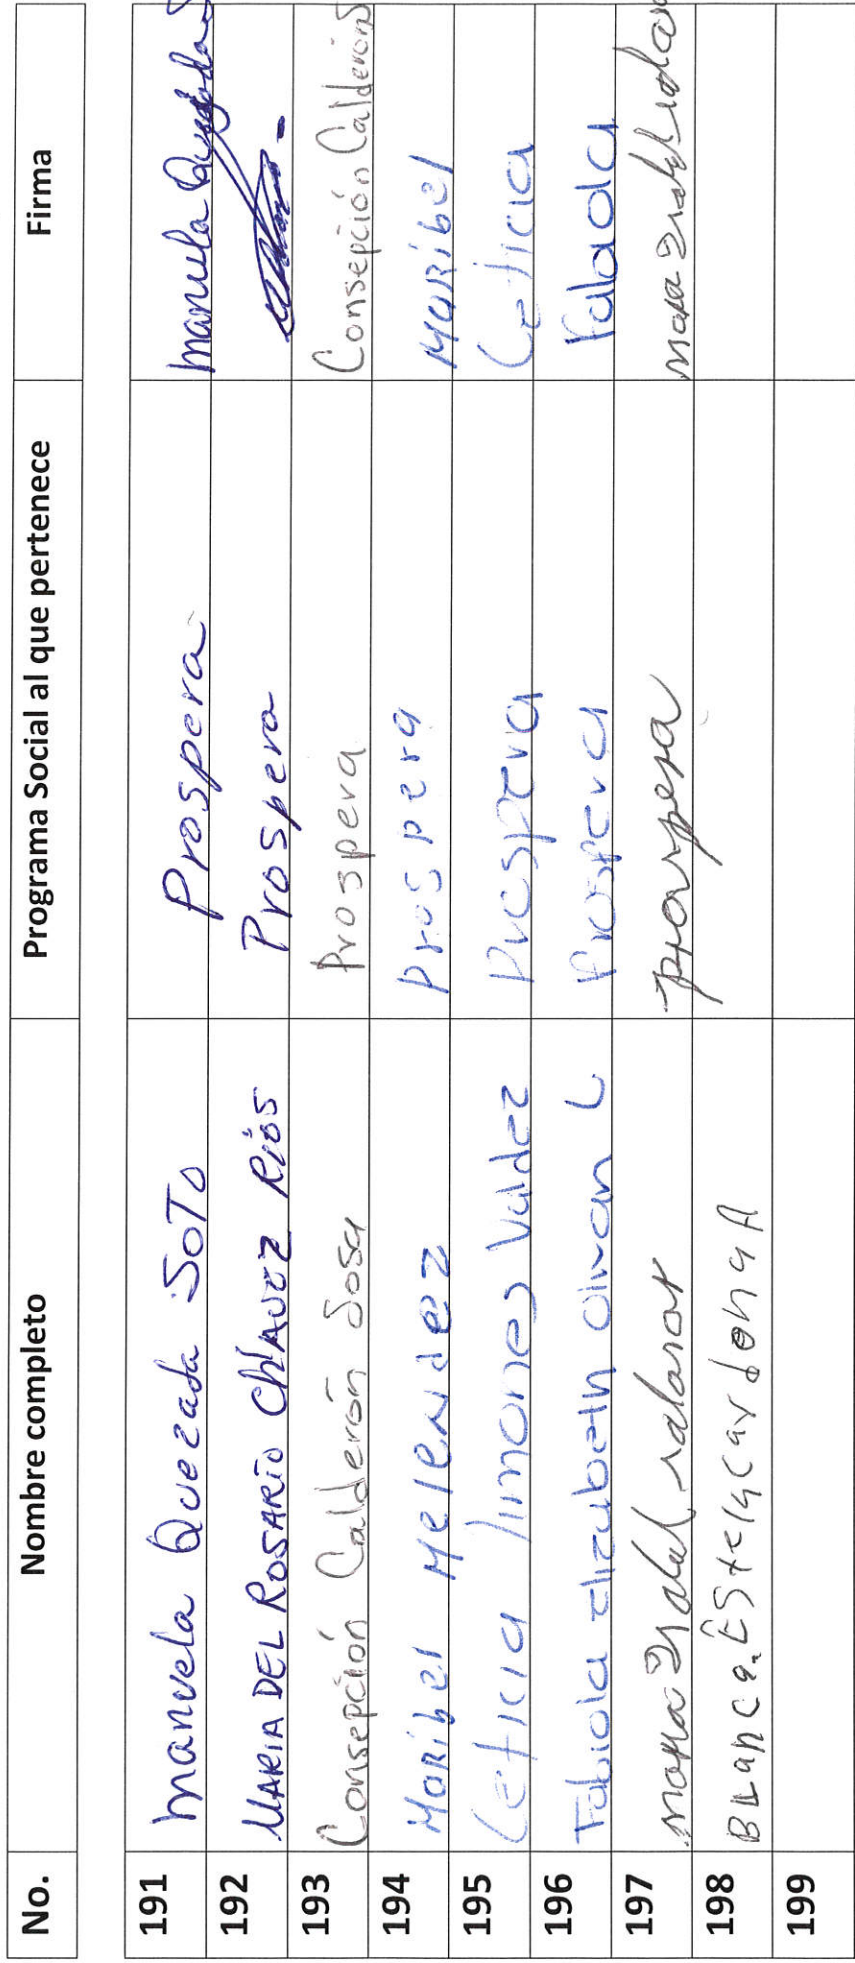 No. Nombre completo Programa Social al que pertenece Firma
191 manuela Quezada SOTO Prospera manuela Quezada S
192 MARIA DEL ROSARIO CHAVEZ RIOS Prospera
193 Consepción Calderón Sosa Prospera Consepción Calderón S
194 Maribel Melendez Prospera Maribel
195 Leticia limones Valdez Prospera Leticia
196 Fabiola Elizabeth Olivan L Prospera
197 maria Isabel salasar prospera maria Isabel salasar
198 BLanca EStela cardona A
199